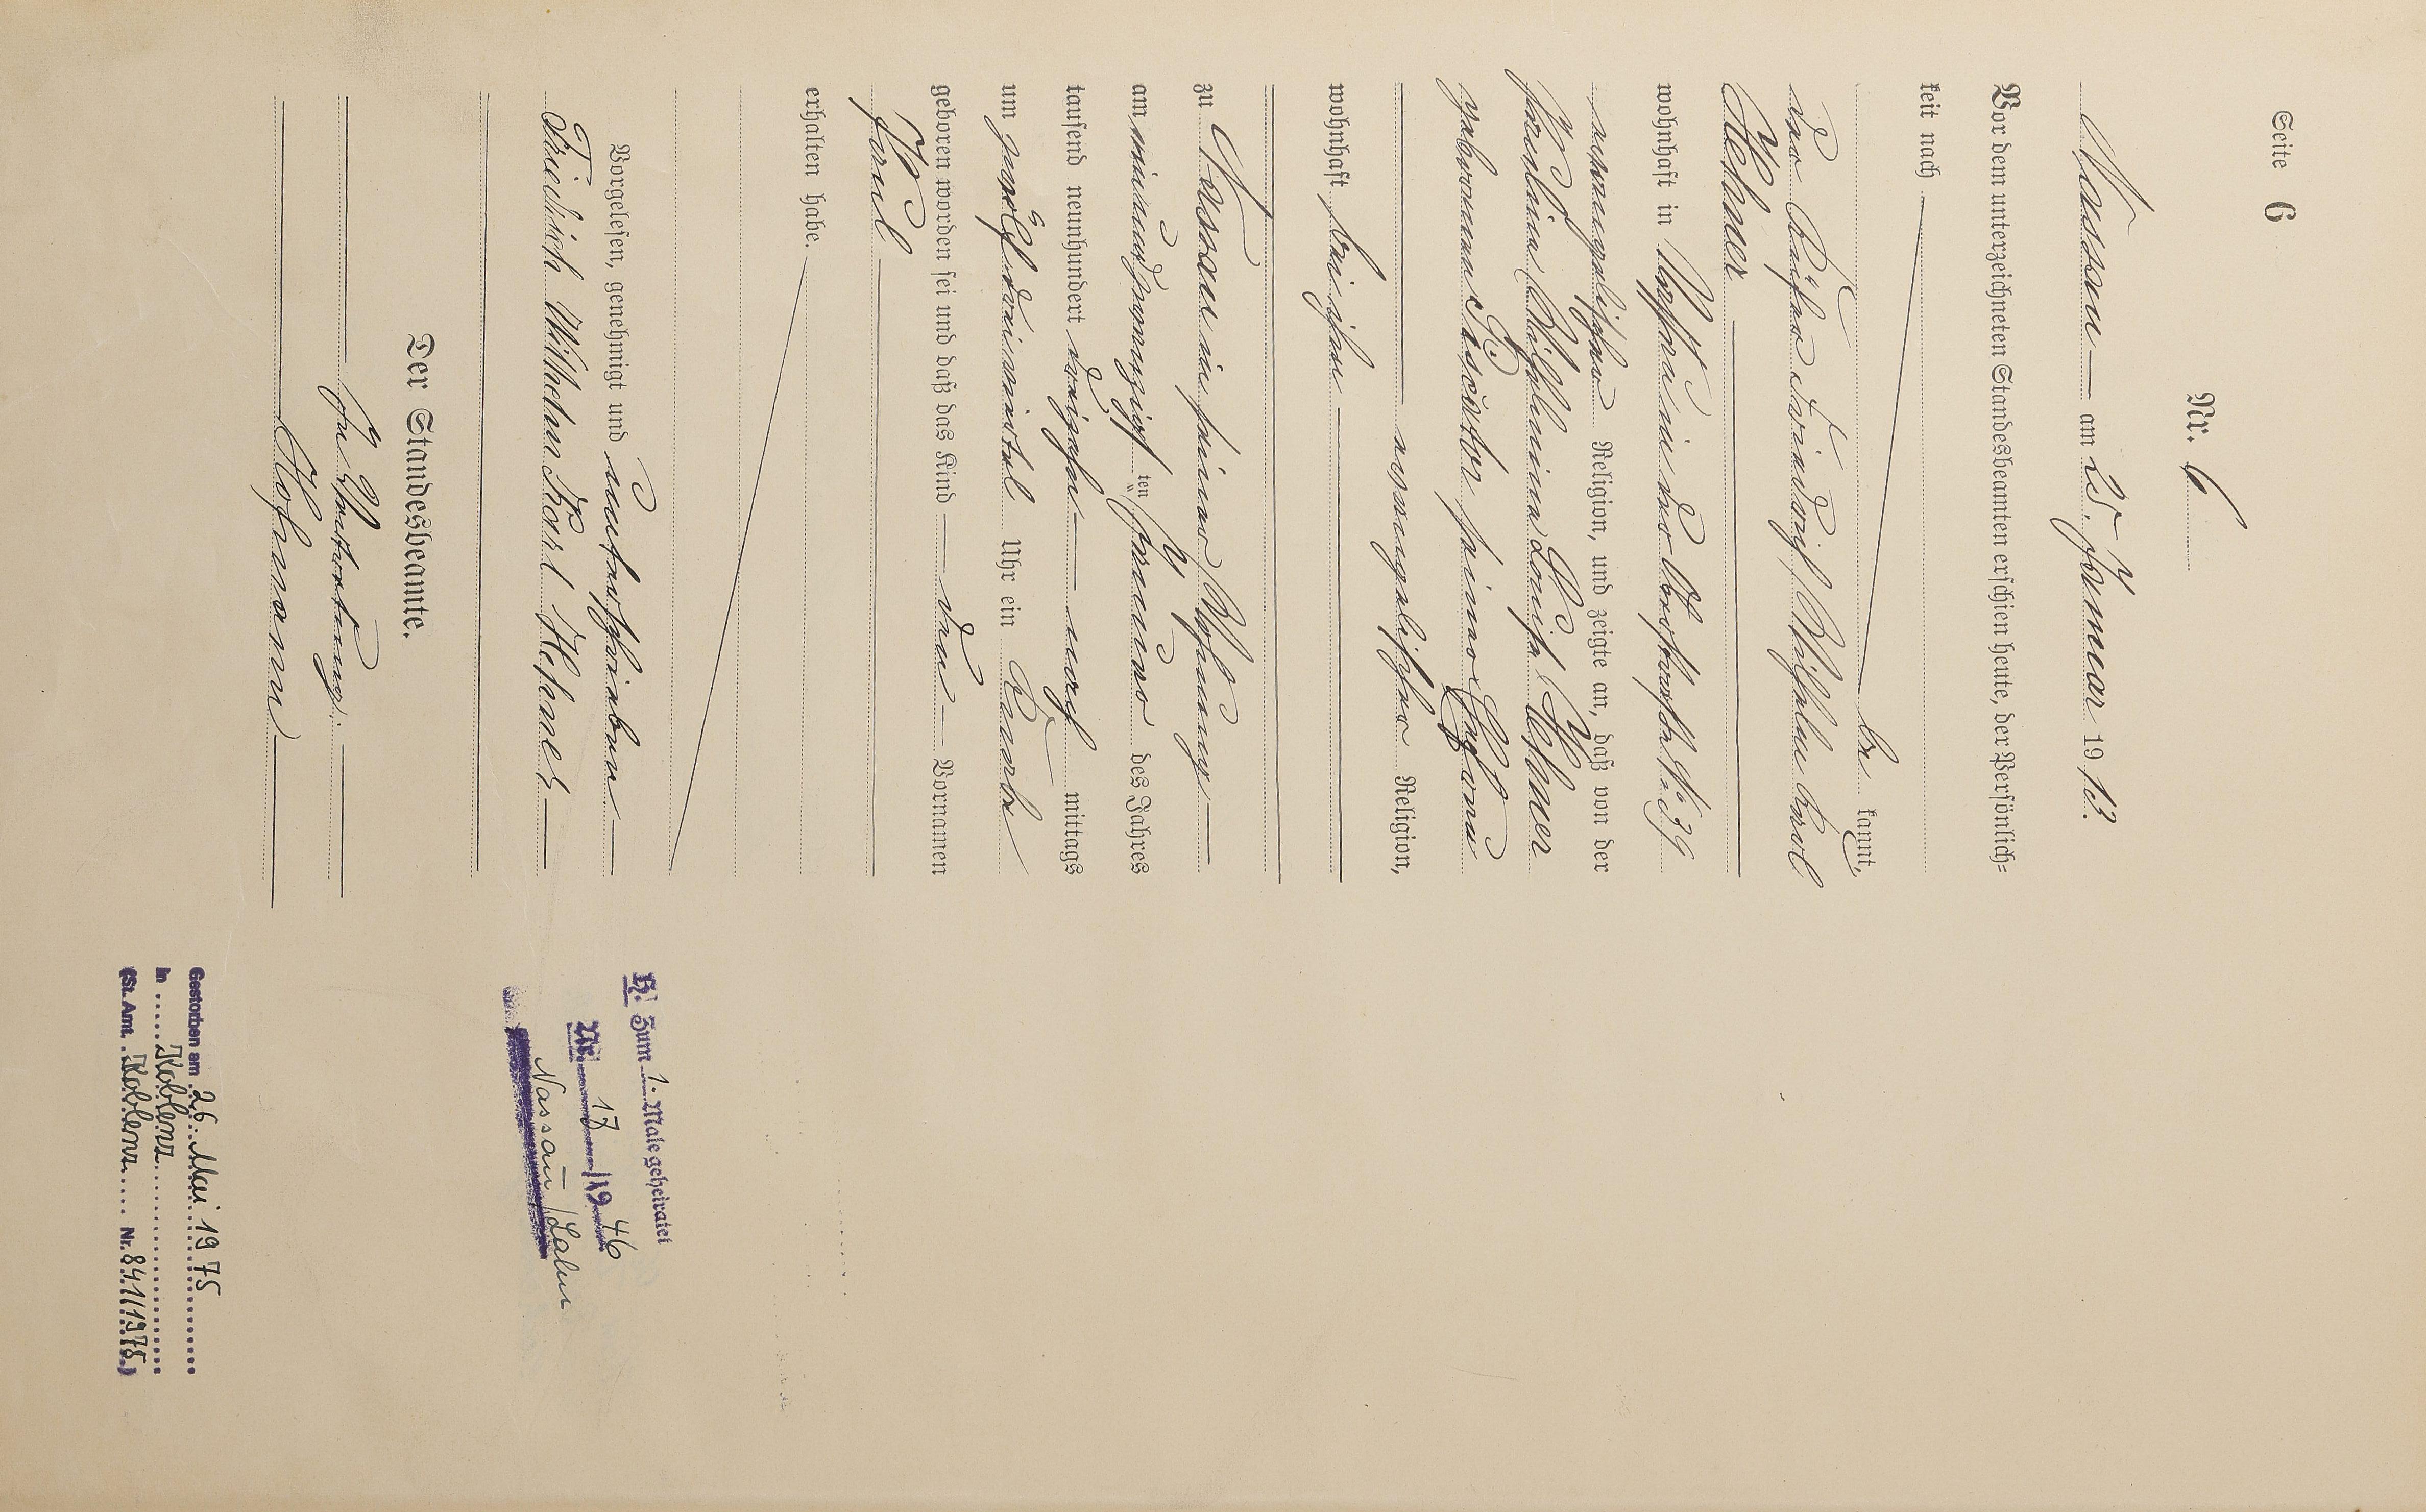 Seite 6
Nr. 6
Nassau am 25. Januar 1913.
Vor dem unterzeichneten Standesbeamten erschien heute, der Persönlich-
keit nach
be kannt,
der Küfer Friedrich Wilhelm Karl
Hehner
wohnhaft in Nassau in der Oberstraße No 39
evangelischer Religion, und zeigte an, daß von der
Pauline Wilhelmine Louise Hehner
geborenen Discator seiner Ehefrau
evangelischer Religion,
wohnhaft bei ihm
zu Nassau in seiner Wohnung
am einundzwanzigsten Januar des Jahres
tausend neunhundert dreizehn nach mittags
um zwölf dreiviertel Uhr ein Knabe
geboren worden sei und daß das Kind den Vornamen
Paul
erhalten habe.
Vorgelesen, genehmigt und unterschrieben
Friedrich Wilhelm Karl Hehner
Der Standesbeamte.
In Vertretung:
Hofmann
H. Zum 1. Male geheiratet
Nr. 17 1946
Nassau/Lahn
Gestorben am 26. Mai 1975
in Koblenz
(St. Amt Koblenz Nr. 841/1975)